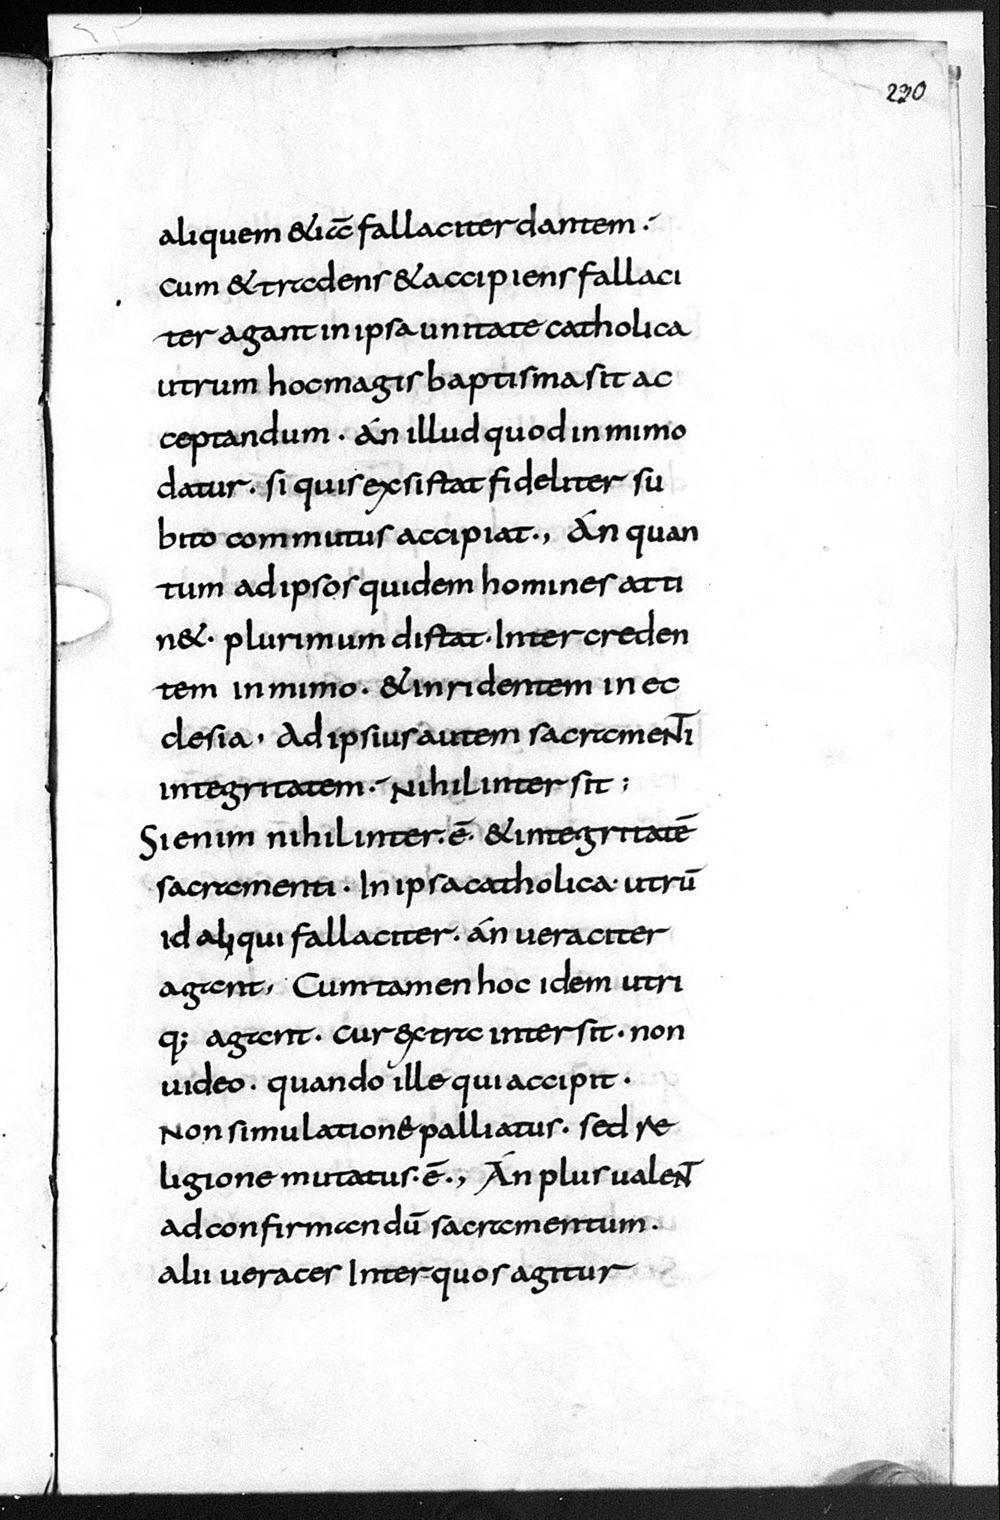 230
aliquem &iā fallaciter dantem.
cum & tradens & accipiens fallaci
ter agant in ipsa unitate catholica
utrum hoc magis baptisma sit ac
ceptandum. Án illud quod in mimo
datur. si quis exsistat fideliter su
bito commutus accipiat., Án quan
tum ad ipsos quidem homines atti
n&. plurimum distat. Inter creden
tem in mimo. & inridentem in ec
clesia, Ad ipsius autem sacramenti
integritatem. Nihil intersit;
Si enim nihil inter. ē. & integritatē
sacramenti. In ipsa catholica utrū
id aliqui fallaciter. án ueraciter
agant, Cum tamen hoc idem utri
q; agant. cur extra intersit. non
uideo. quando ille qui accipit.
Non simulatione palliatus. sed re
ligione mutatus. ē., Án plus ualent
ad confirmandū sacramentum.
alii ueraces Inter quos agitur